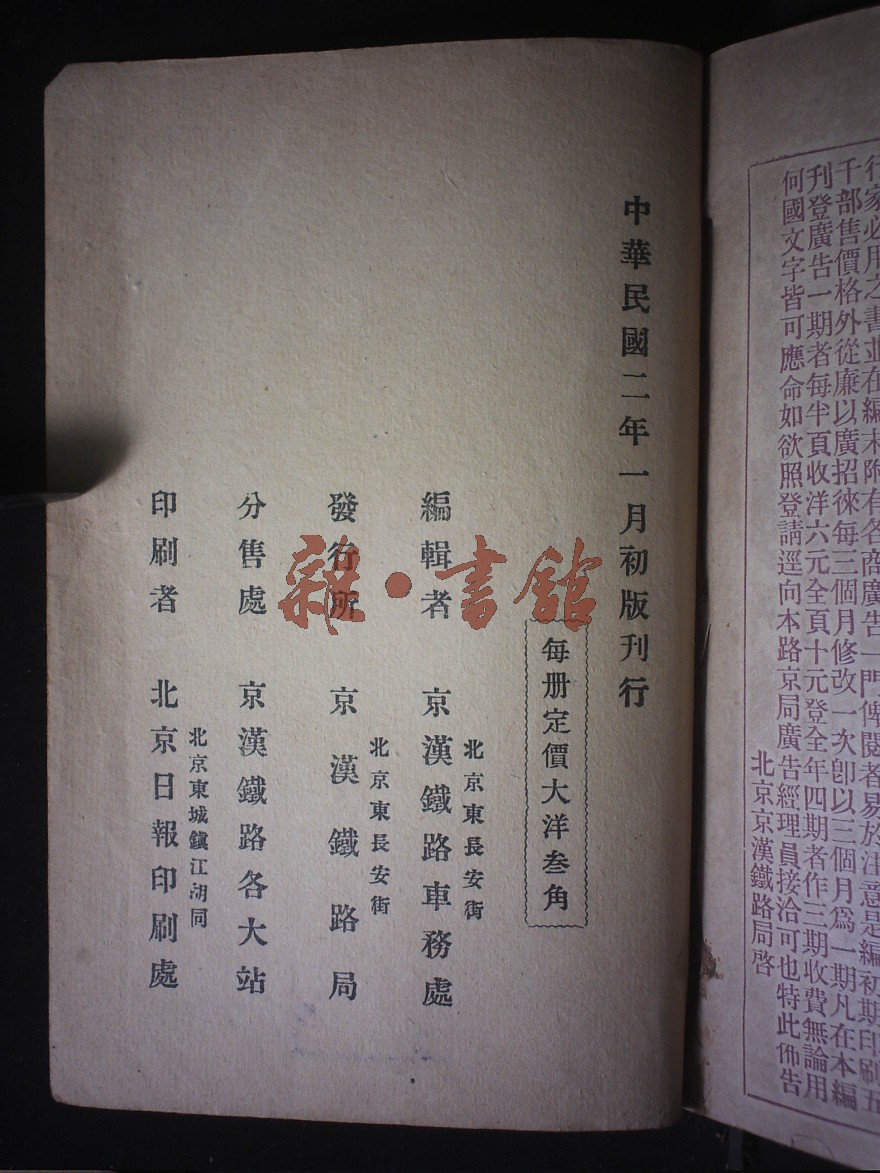 行家必用之書並在編末附有各商廣告一門俾閱者易於注意是編初期印刷五
千部售價格外從廉以廣招徠每三個月修改一次卽以三個月爲一期凡在本編
刊登廣告一期者每半頁收洋六元全頁十元登全年四期者作三期收費無論用
何國文字皆可應命如欲照登請逕向本路京局廣告經理員接洽可也特此佈告
北京京漢鐵路局啓
中華民國二年一月初版刊行
每册定價大洋叁角
北京東長安街
編輯者 京漢鐵路車務處
北京東長安街
發行所 京漢鐵路局
分售處 京漢鐵路各大站
北京東城鎭江胡同
印刷者 北京日報印刷處
雜·書館